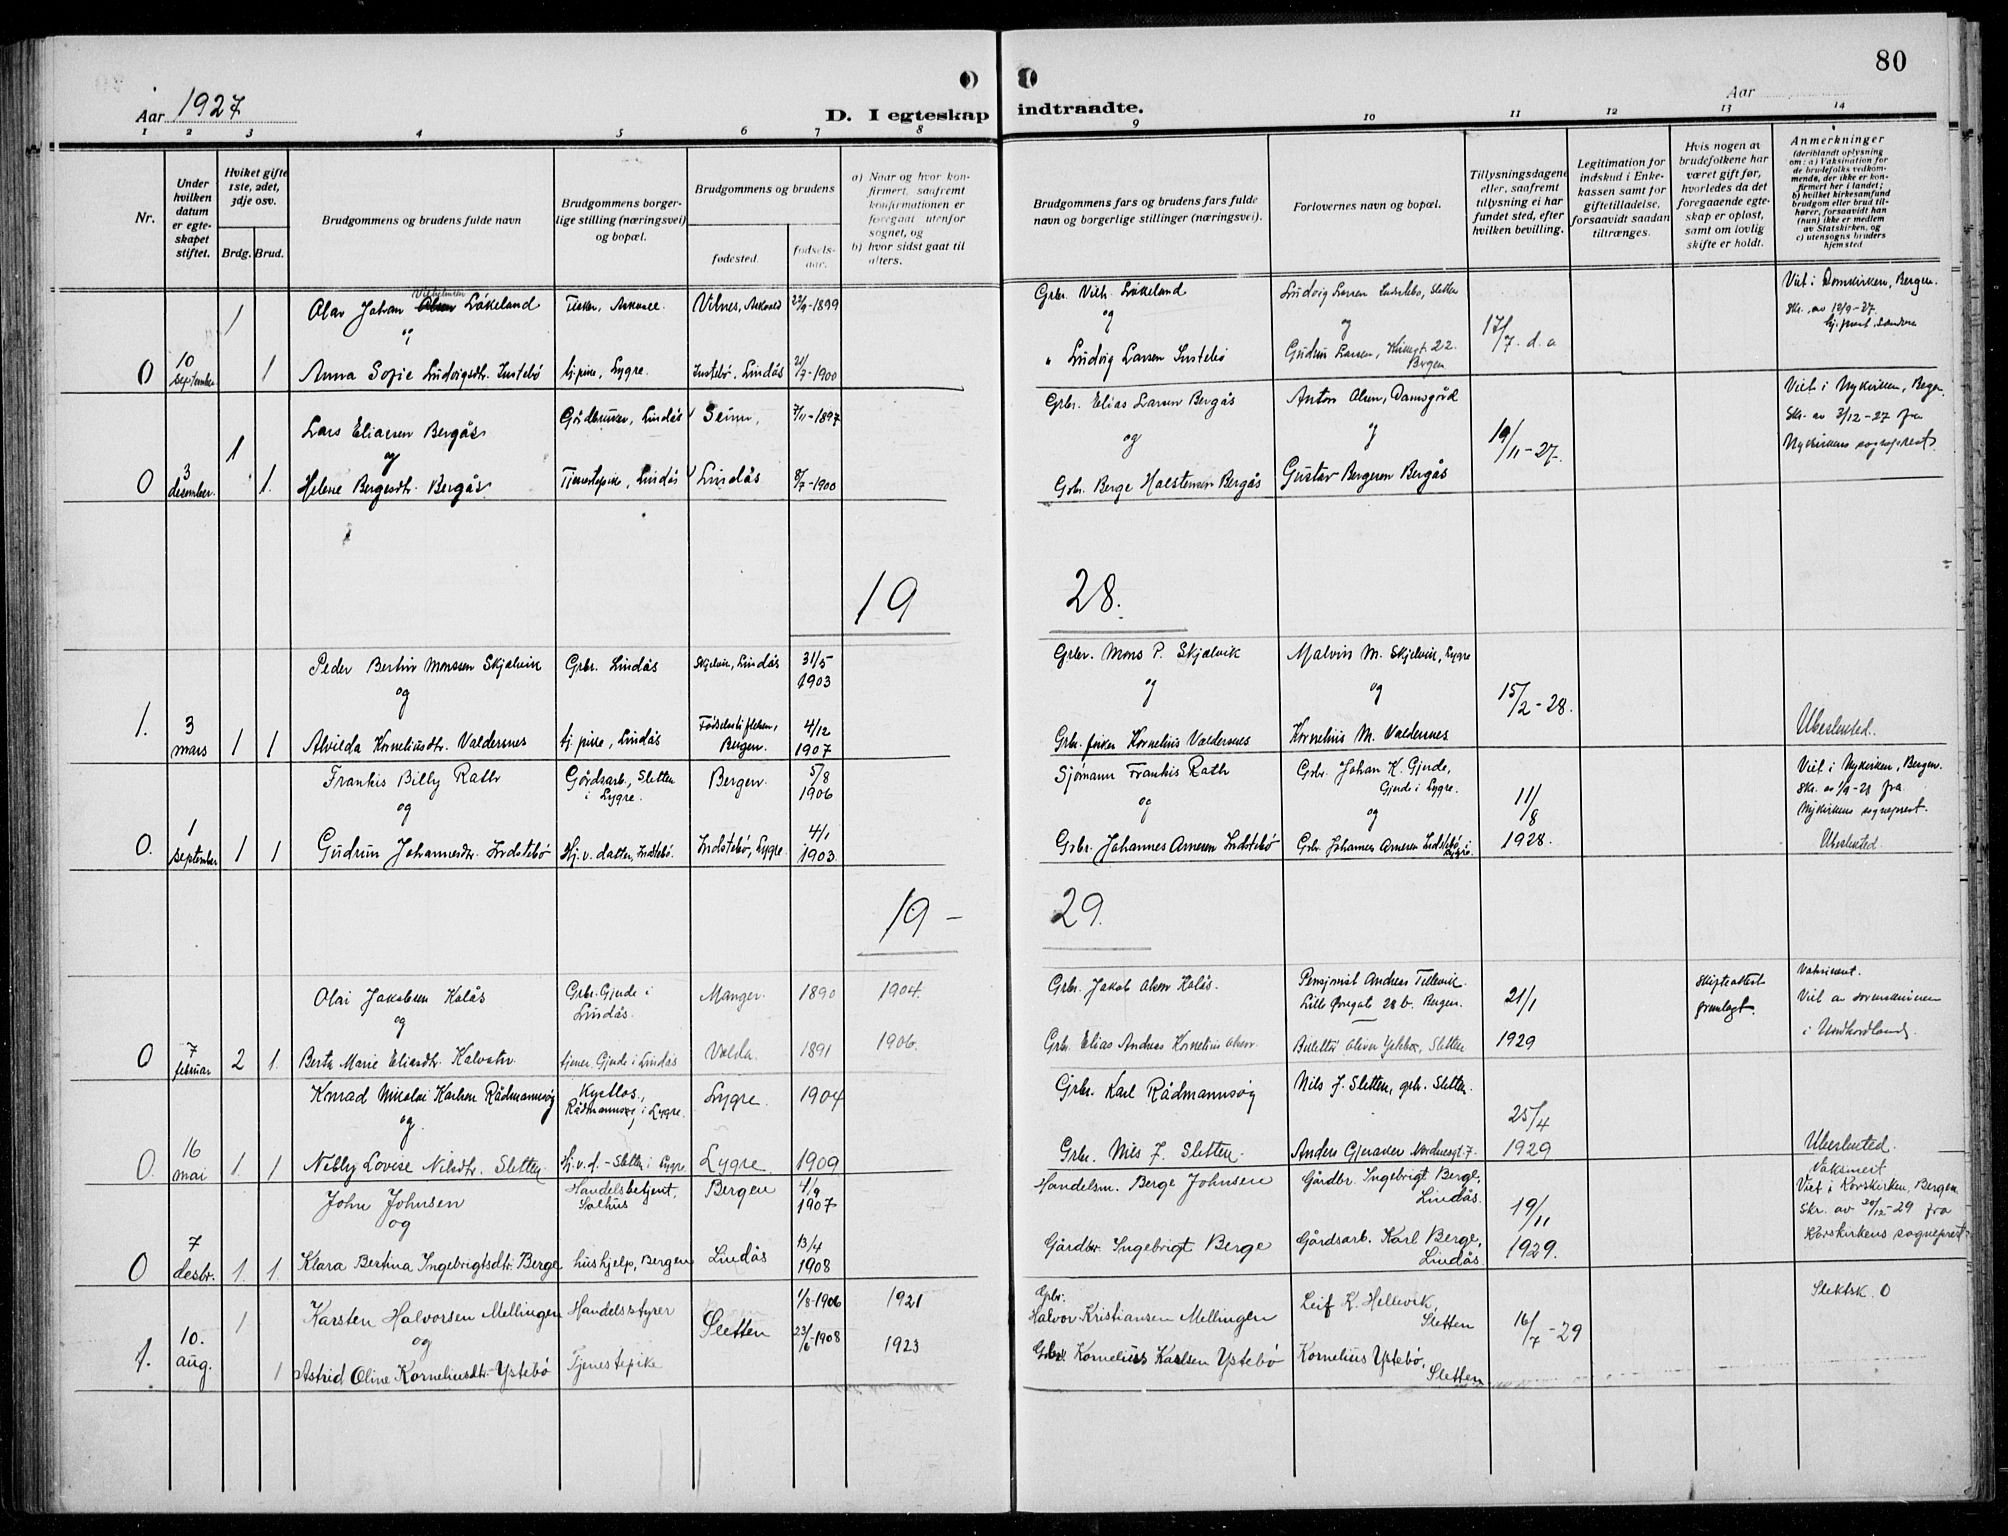 80
Aar 1927
D. I egteskap indtraadte.
Aar
1 2 3 4 5 6 7 8 9 10 11 12 13 14
Nr.
Under hvilken datum er egteskapet stiftet.
Hviket gifte 1ste, 2det, 3dje osv.
Brdg. Brud.
Brudgommens og brudens fulde navn
Brudgommens borgerlige stilling (næringsvei) og bopæl.
Brudgommens og brudens
fødested.
fødselsaar.
a) Naar og hvor konfirmert, saafremt konfirmationen er foregaat utenfor sognet, og
b) hvor sidst gaat til alters.
Brudgommens fars og brudens fars fulde navn og borgerlige stillinger (næringsvei).
Forlovernes navn og bopæl.
Tillysningsdagene eller, saafremt tillysning ei har fundet sted, efter hvilken bevilling.
Legitimation for indskud i Enkekassen samt for giftetilladelse, forsaavidt saadan tiltrænges.
Hvis nogen av brudefolkene har været gift før, hvorledes da det foregaaende egteskap er opløst, samt om lovlig skifte er holdt.
Anmerkninger
(deriblandt oplysning om: a) Vaksination for de brudefolks vedkommende, der ikke er konfirmert her i landet; b) hvilket kirkesamfund brudgom eller brud tilhører, forsaavidt han (hun) ikke er medlem av Statskirken, og c) utensogns bruders hjemsted
Olav Johan Vilhelmsen Løkeland
Fisker, Askvoll.
Vilnes, Askvold
22/9-1899
Grbr. Vilh. Løkeland
Ludvig Larsen Indstebø, Sletten
Viet i Domkirken, Bergen.
1
og
og
og
17/7. d. a
0 10 september 1
Anna Sofie Ludvigsdtr. Instebø
tj. pike, Lygre.
Instebö, Lindås
21/7-1900
" Ludvig Larsen Instebø
Gudrun Larsen, Kirkegt. 22. Bergen
Lars Eliassen Bergås
Gårdbruker, Lindås
Seim,
7/11-1897
Grbr. Elias Larsen Bergås
Anton Olsen, Damsgård
Viet i Nykirken, Bergen.
Skr. av 3/12-27 fra
Nykirkens sogneprest.
1
og
og
og
19/11-27.
0 3 desember. 1.
Helene Bergesdtr. Bergås
Tjenestepike, Lindås
Lindås
8/7-1900
Grbr. Berge Halstensen Bergås
Gustav Bergesen Bergås
19 28.
Peder Bertin Monssen Skjelvik
Grbr. Lindås
Skjelvik, Lindås
31/5 1903
Grbr. Mons P. Skjælvik
Malvin M. Skjelvik, Lygre
og
og
og
15/2-28.
1. 3 mars 1 1
Alvilda Korneliusdtr. Valdersnes
tj. pike, Lindås
Fødselsstiftelsen, Bergen.
4/12 1907
Grbr. fisker Kornelius Valdersnes
Kornelius M. Valdersnes
Ubeslekted.
Frankis Billy Rath
Gårdsarb., Sletten i Lygre.
Bergen.
5/8 1906
Sjømann Frankis Rath
Grbr. Johan K. Gjerde, Gjerde i Lygre.
Viet i Nykirken, Bergen.
Skr. av 1/9-28 fra
Nykirkens sogneprest.
og
og
og
11/8 1928.
0. 1 september 1 1
Gudrun Johannesdtr. Indstebø
Hj. v. datter, Indstebø.
Indstebø, Lygre.
4/1 1903.
Grbr. Johannes Arnesen Indstebø
Grbr. Johannes Arnesen Indstebø, Lygre.
Ubeslekted.
19- 29.
Olai Jakobsen Kolås
Grbr. Gjerde i Lindås.
Manger.
1890
1904.
Grbr. Jakob Olsen Kolås.
Pensjonist Andreas Tellevik. Lille Øvregate 28 b. Bergen.
21/1 1929
Skifteattest fremlagt.
Vaksinert.
Viet av sorenskriveren
i Nordhordland.
og
0 7 februar 2 1.
Berta Marie Eliasdtr. Kalvatn.
tjener. Gjerde i Lindås
Volda
1891
1906.
Grbr. Elias Andreas Kornelius Olsen.
Oliver Ystebø, Sletten
Konrad Nicolai Karlsen Rådmannsøy
Rådmannsøy, i Lygre.
Lygre.
1904
Grbr. Karl Rådmannsøy
Nils J. Sletten, grb. Sletten.
og.
25/4 1929
0. 16 mai 1. 1
Nelly Lovise Nilsdtr. Sletten.
Hj. v. d. - Sletten i Lygre
Lygre.
1909
Grbr. Nils J. Sletten.
Ubeslektet.
John Johnsen
Handelsbetjent, Salhus
Bergen
4/9 1907
Handelsm. Berge Johnsen
Gårdbr. Ingebrigt Berge, Lindås.
19/11 1929.
Vaksinert
Viet i Korskirken, Bergen
Skr. av 20/12-29 fra
Korskirkens sogneprest.
og
0 7 desbr. 1. 1.
Klara Bertina Ingebrigtsdtr. Berge
hushjelp, Bergen
Lindås
13/4 1908
Gårdbr. Ingebrigt Berge
Gårdsarb. Karl Berge, Lindås.
Karsten Halvorsen Mellingen
Handelsstyrer
1/8-1906
1921
Grbr. Halvor Kristiansen Mellingen
Leif K. Hellevik, Sletten
16/7-29
Slektsk. 0
1
og
Sletten
23/6-1908
1923
1. 10. aug. 1
Astrid Oline Korneliusdtr. Ystebö
Tjenestepike
Grbr. Kornelius Karlsen Ystebö
Kornelius Ystebö, Sletten